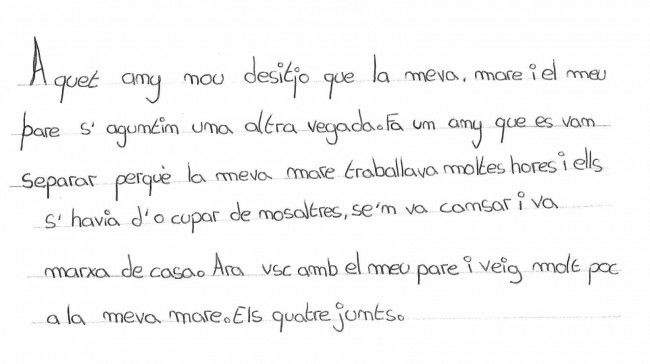 Aquet amy nou desitjo que la meva. mare i el meu
pare s' aguntim uma altra vegada. Fa um amy que es vam
separar perquè la meva mare traballava moltes hores i ells
s' havia d'ocupar de mosaltres, se'm va camsar i va
marxa de casa. Ara vsc amb el meu pare i veig molt poc
a la meva mare. Els quatre jumts.